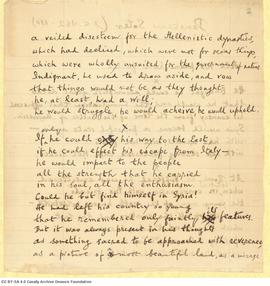 2
a veiled disesteem for the Hellenistic dynasties,
which had declined, which were not for serious things
which were wholly unsuited for the government of nations
Indignant, he used to draw aside, and vow
that things would not be as they thought;
he, at least, had a will,
he would struggle, he would acheive, he would uphold.
X
only
If he could his way to the East,
if he could effect his escape from Italy—
he would impart to the people
all the strength that he carried
in his soul, all the enthusiasm.
Could he but find himself in Syria!
He had left his country so young
that he remembered only faintly its features.
But it was always present in his thoughts
as something sacred to be approached with reverence
as a picture of a most beautiful land, as a mirage
CC BY-SA 4.0 Cavafy Archive Onassis Foundation